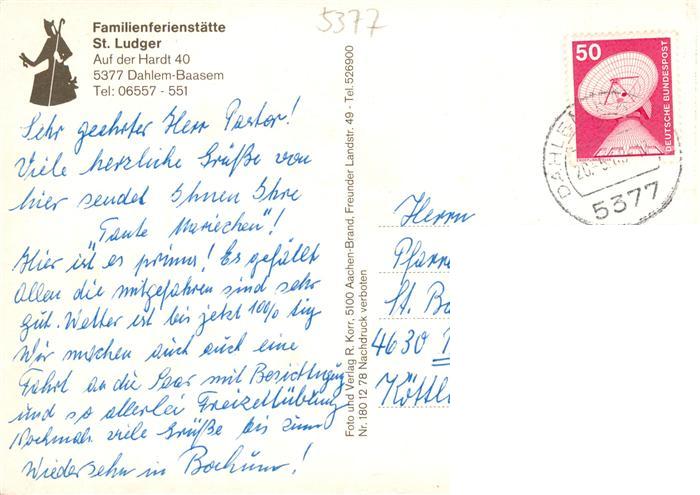 5377
Familienferienstätte
St. Ludger
Auf der Hardt 40
5377 Dahlem-Baasem
Tel: 06557 - 551
Sehr geehrter Herr Pastor!
Viele herzliche Grüße von
hier sendet Ihnen Ihre
„Tante Mariechen"!
Hier ist es prima! Es gefällt
Allen die mitgefahren sind sehr
gut. Wetter ist bis jetzt 100%
Wir machen auch auch eine
Fahrt an die Saar mit Besichtigung
und so allerlei
Nochmals viele Grüße bis zum
Wiedersehn in Bochum!
Foto und Verlag R. Korr, 5100 Aachen-Brand, Freunder Landstr. 49 - Tel. 526900
Nr. 180 12 78 Nachdruck verboten
50
DEUTSCHE BUNDESPOST
DAHLE
5377
Herrn
Pfarre
St. Bo
4630
Köttl